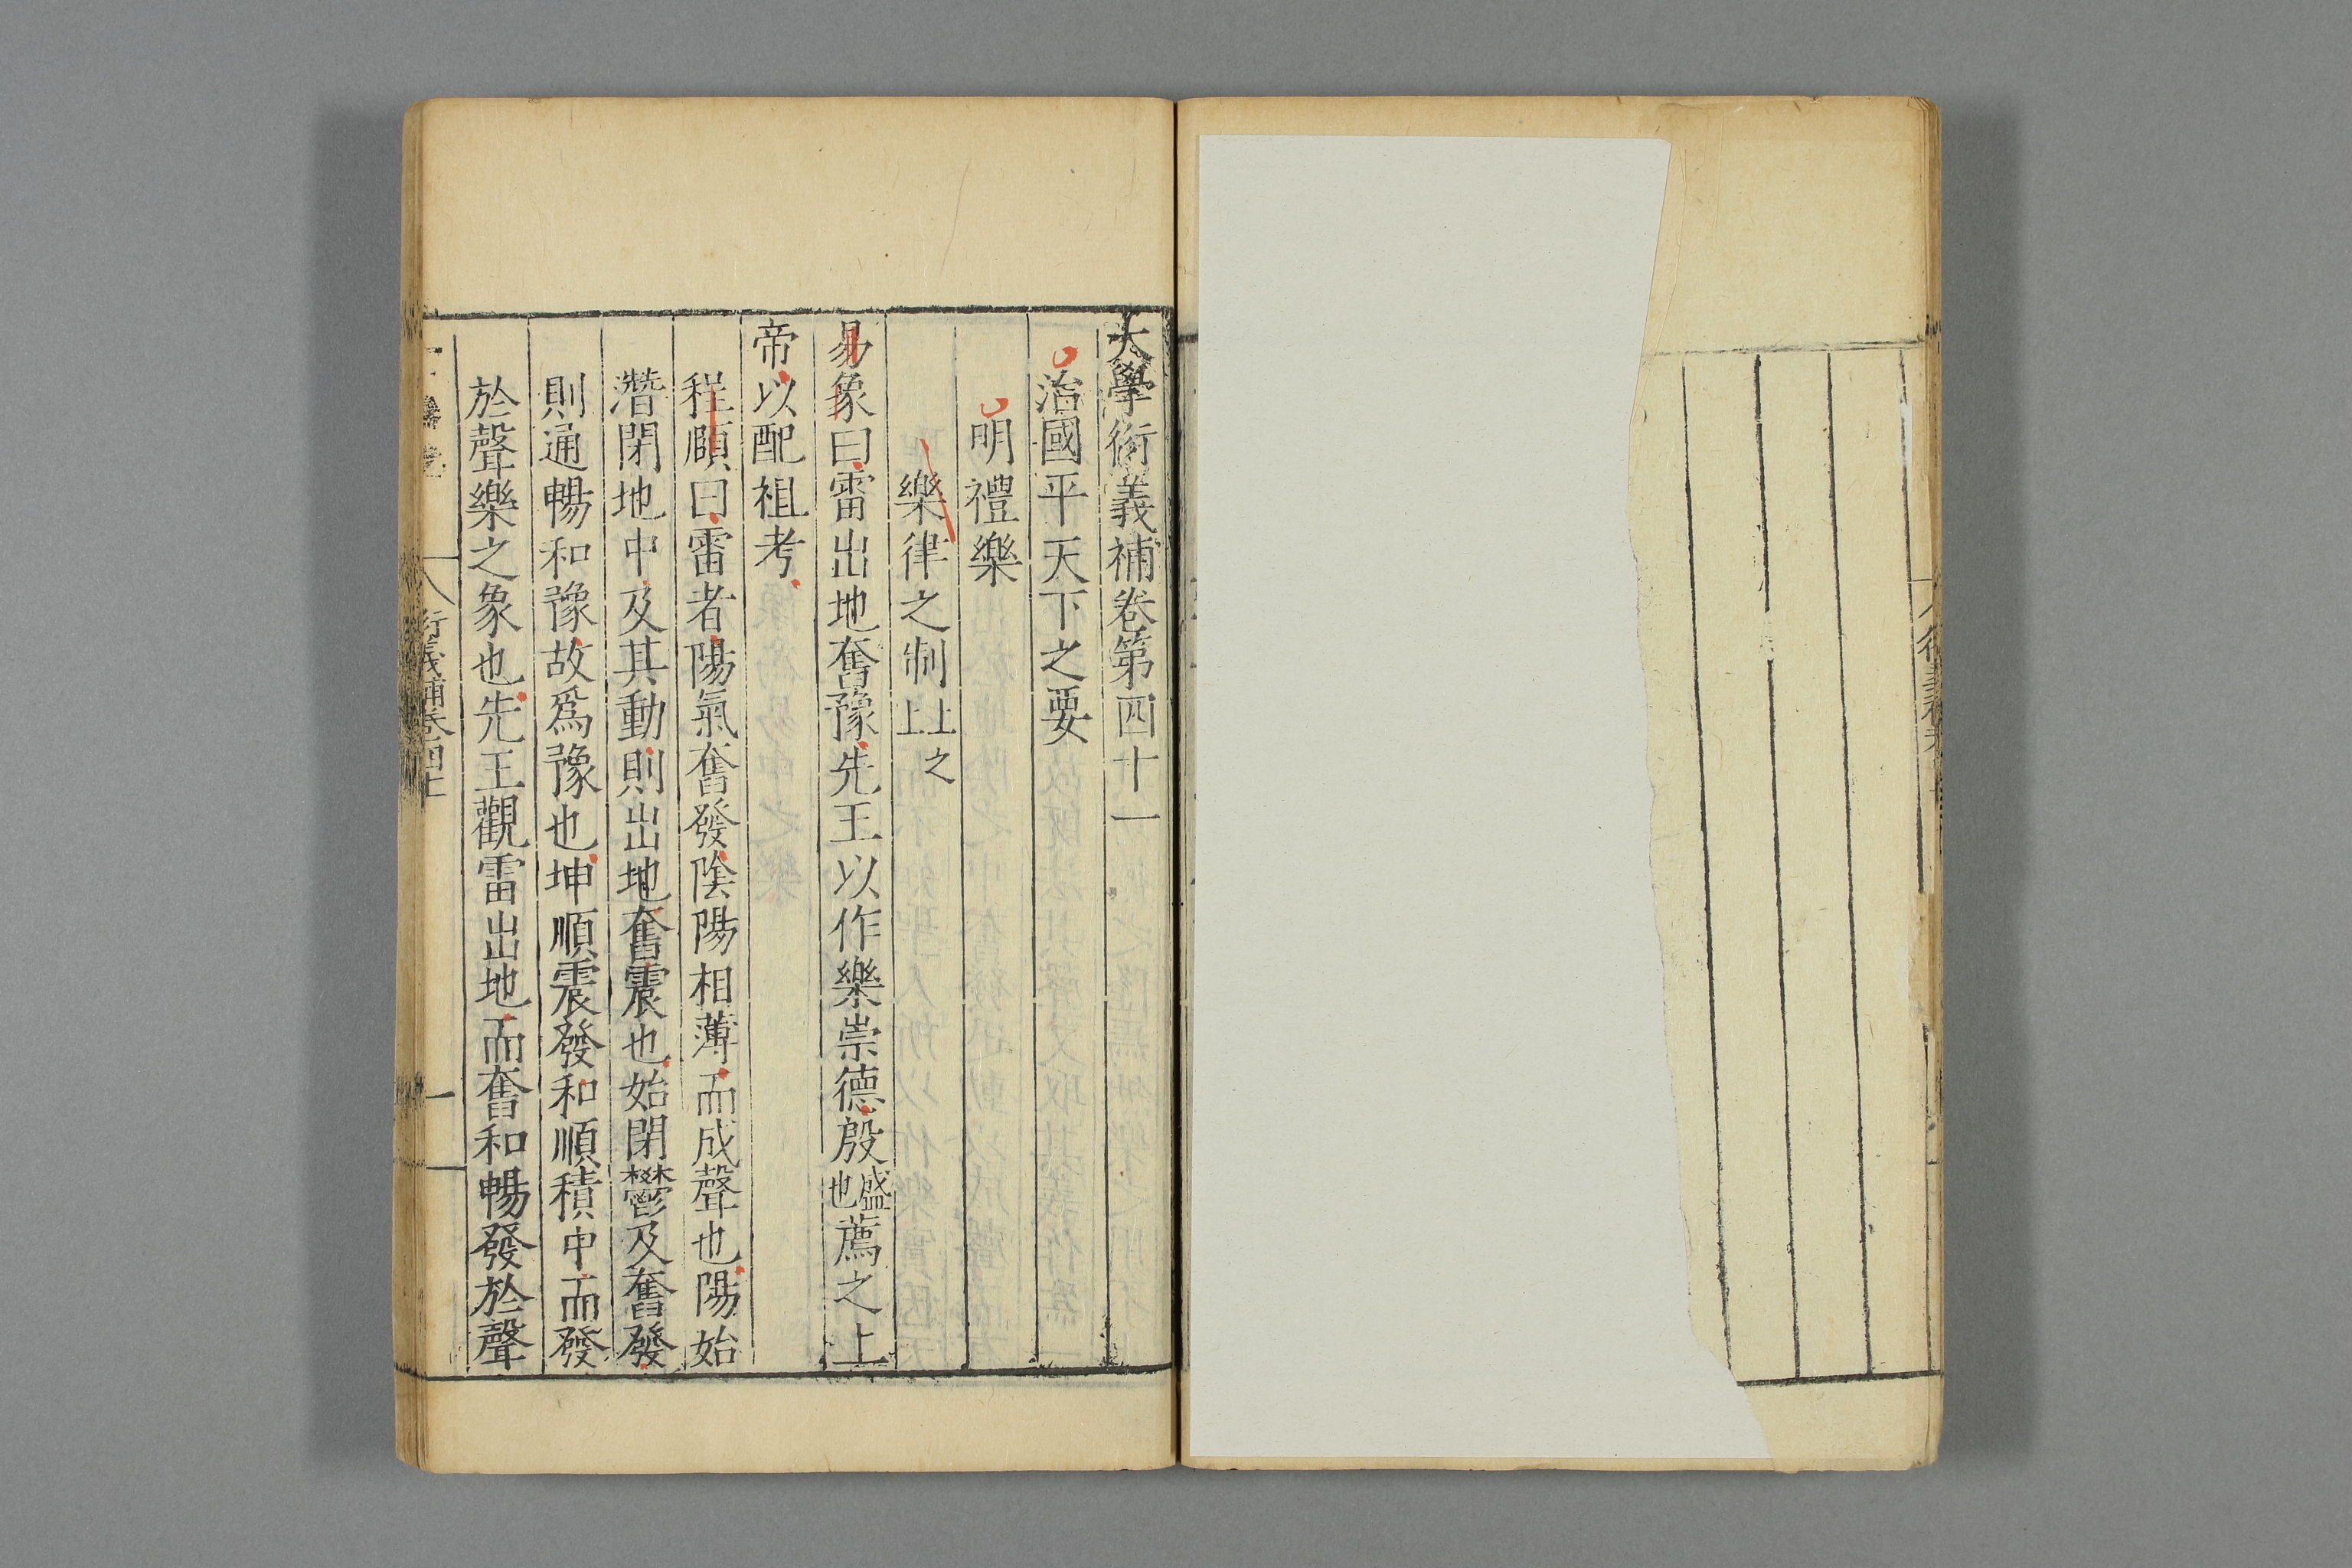 大學衍義補卷第四十一
治國平天下之要
明禮樂
樂律之制上之上
易象曰雷出地奮豫先王以作樂崇德殷盛也薦之上
帝以配祖考
程頤曰雷者陽氣奮發陰陽相薄而成聲也陽始
潛閉地中及其動則出地奮震也始閉鬱及奮發
則通暢和豫故爲豫也坤順震發和順積中而發
於聲樂之象也先王觀雷出地而奮和暢發於聲
衍義補卷四十一
一